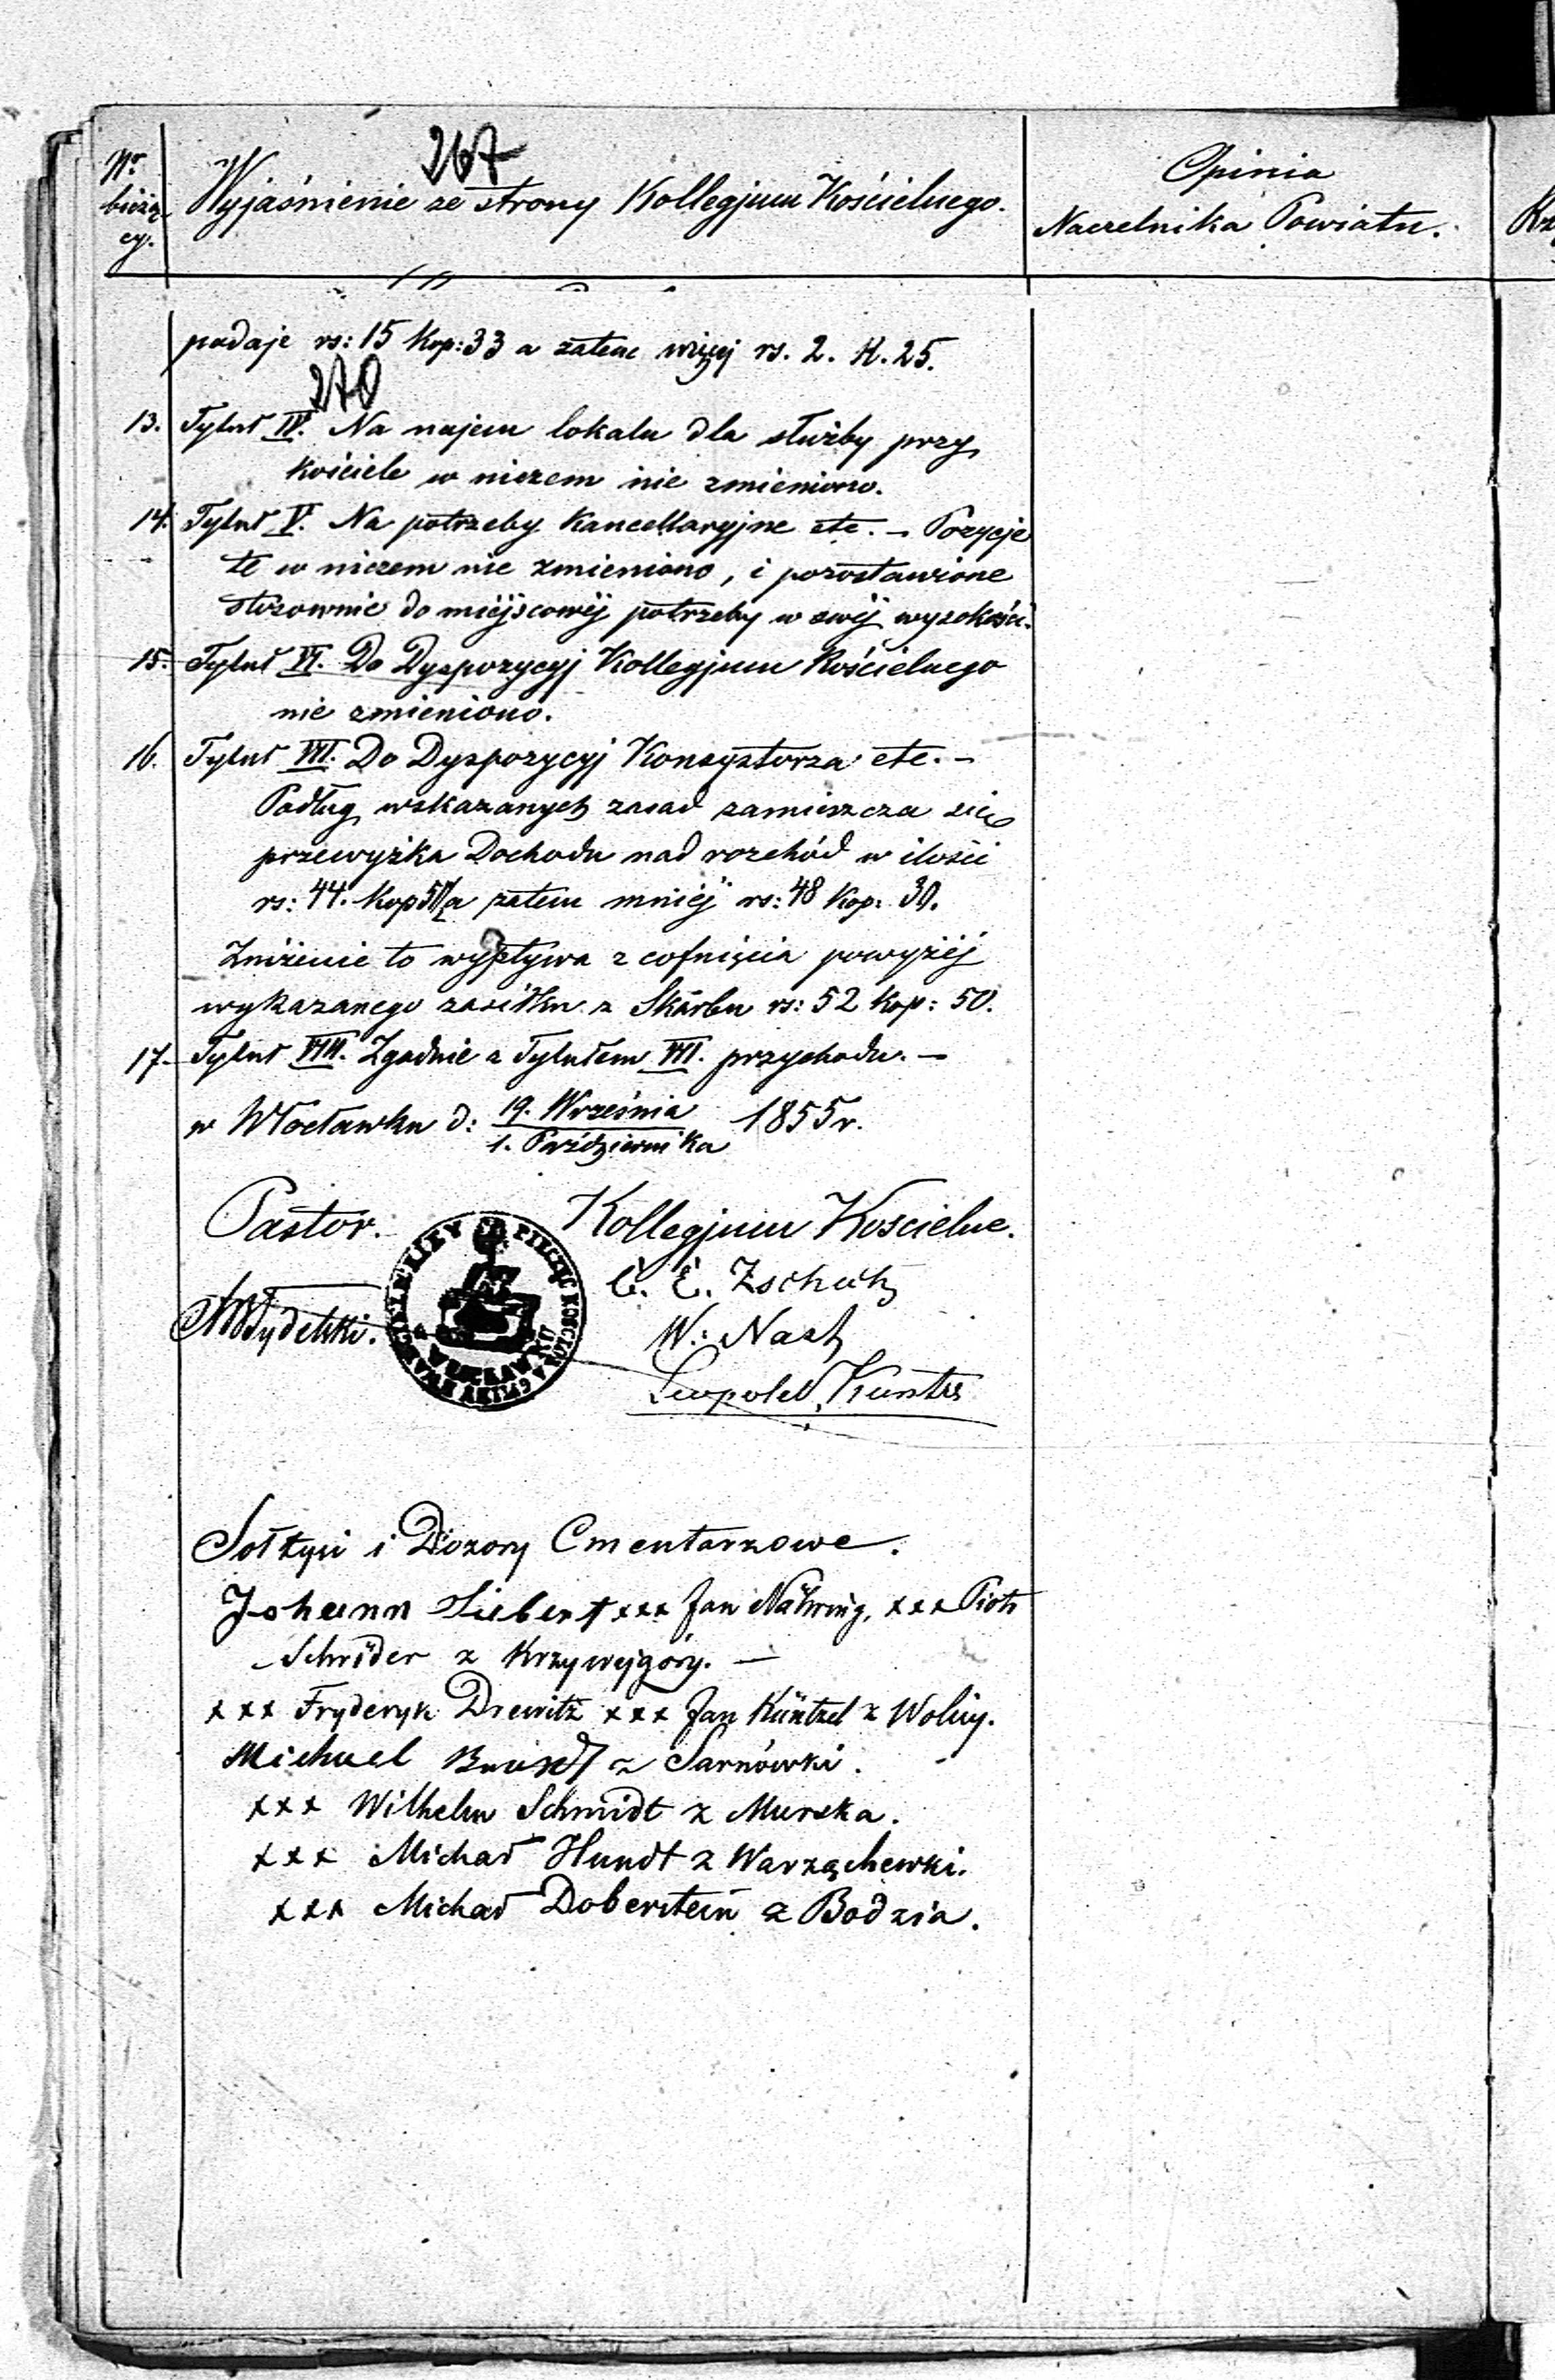 267
Nr bieżą- cy.
Wyjaśnienie ze strony Kollegjum Kościelnego.
Opinia
Naczelnika Powiatu.
podaje rs: 15 Kop: 33 a zatem więcej rs. 2. K. 25.
270
13. Tytuł IV. Na najem lokalu dla służby przy
kościele w niczem nie zmieniono.
14. Tytuł V. Na potrzeby Kancellaryjne etc. – Pozycje
te w niczem nie zmieniono, i pozostawione
stósownie do miéjscowéj potrzeby w swéj wysokości.
15. Tytuł VI. Do Dyspozycyj Kollegjum Kościelnego
nie zmieniono.
16. Tytuł VII. Do Dyspozycyj Konsystorza etc. –
Podług wskazanych zasad zamieszcza się
przewyżka Dochodu nad rozchód w ilości
rs: 44. Kop a zatem mniéj rs: 48 Kop: 30.
Zniżenie to wypływa z cofnięcia powyżéj
wykazanego zasiłku z Skarbu rs: 52 Kop: 50.
17. Tytuł VIII. Zgodnie z Tytułem VII. przychodu. –
w Włocławku d: 19. Września
1. Października 1855 r.
Pastor. Kollegjum Kościelne.
C. E. Zschutz
W: Nast
Leopold
PIECZĘĆ
Sołtysi i Dozory Cmentarzowe.
Johann Liebert xxx Jan Nähring, xxx Piotr
Schröder z Krzywejgóry. –
xxx Fryderyk Drewitz xxx Jan Küntzel z Wolny.
Michael z Sarnówki.
xxx Wilhelm Schmidt z Murska.
xxx Michał Hundt z Warząchewki.
xxx Michał Doberstein z Bodzia.